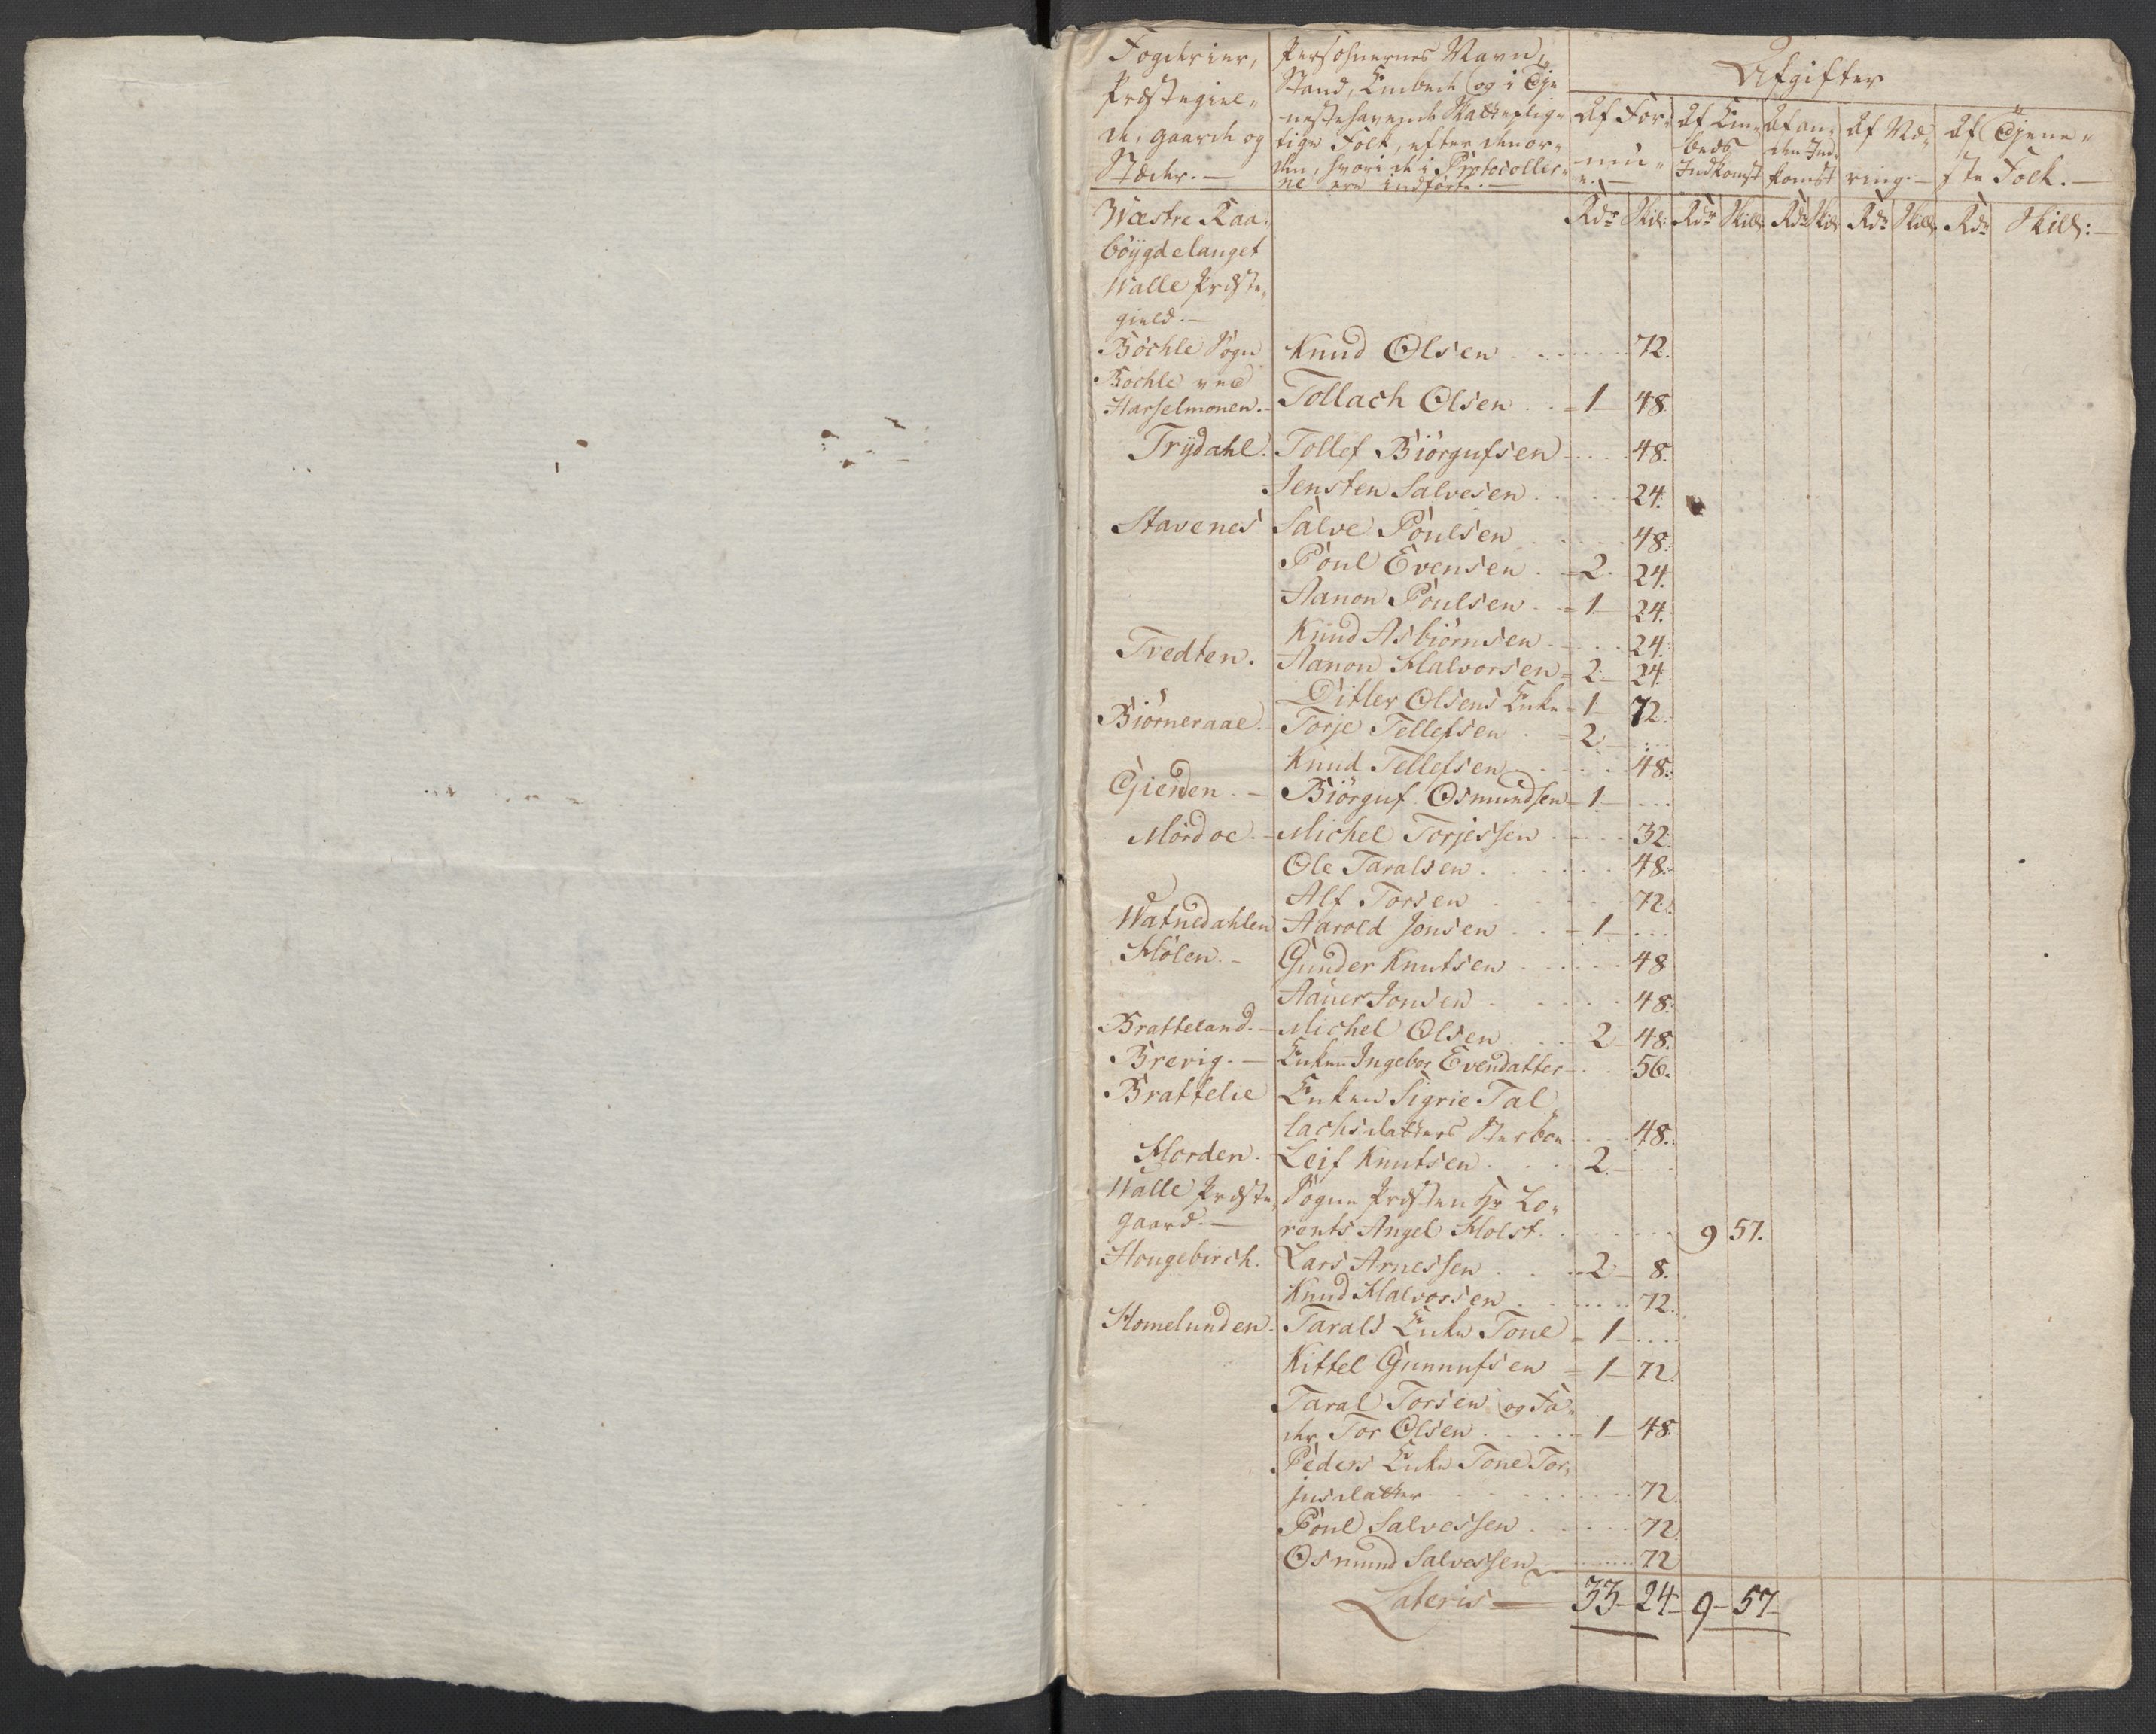 Fogderier, Præstegiel-
de, gaarde og
Stæder. —
Persohnernes Navn,
Stand, Embede og i Tje
nestehavende Skattepligt-
tige Folk, efter den or-
den, hvori de i Protocoller-
ne ere indførte. —
Afgifter
Af For-
mu-
e. —
Af Em-
beds
Indkomst
Af an-
den Ind-
komst
Af Næ-
ring. —
Af Tjene-
ste Folk. —
Rdr Skill: Rdr Skill Rdr Skill Rdr Skill Rdr Skill: —
Wæstre Raa-
böygdelauget
Walle Præste-
gield. —
Böchle Sogn Knud Olsen 72.
Bochle ved
Harselmonen. Tollach Olsen 1 48.
Trydahl. Tollef Biörgufsen 48.
Jensten Salvesen 24.
Stavenes Salve Poulsen 48.
Poul Evensen 2. 24.
Aanon Poulsen 1 24.
Knud Asbiörnsen 24.
Tvedten. Aanon Halvorsen 2 24.
Ditler Olsens Enke 1 72.
Biörneraae. Torje Tellefsen 2
Knud Tellefsen 48.
Gierden. — Biörguf Osmundsen 1
Mördoe. — Michel Torjessen 32.
Ole Taralsen 48.
Alf Torsen 72.
Watnedahlen Aarold Jonsen 1
Holen. — Gunder Knutsen 48
Aauer Jonsen 48.
Bratteland. — Michel Olsen 2 48.
Brevig. — Enken Ingebor Evendatter 56.
Brattelie Enken Sigrie Tal-
lachsdatters Sterboe 48.
Horden. Leif Knutsen 2
Walle Præste- Sogne Præsten Hr Lo-
gaard. — rents Angel Holst 9 57.
Hougebirch. Lars Arnessen 2 8.
Knud Halvorsen 72.
Homelunden. Tarals Enke Tone 1
Kittel Gunnufsen 1 72.
Taral Torsen og Fa-
der Tor Olsen 1 48.
Peders Enke Tone Tor-
jusdatter 72.
Poul Salvessen 72.
Osmund Salvessen 72
Lateris — 33 24 9 57